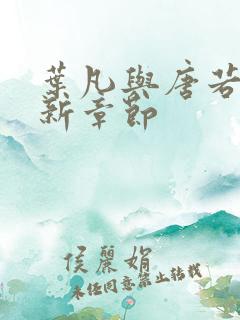 葉凡與唐若
新章節
侯麗娟
未经同意禁止转载